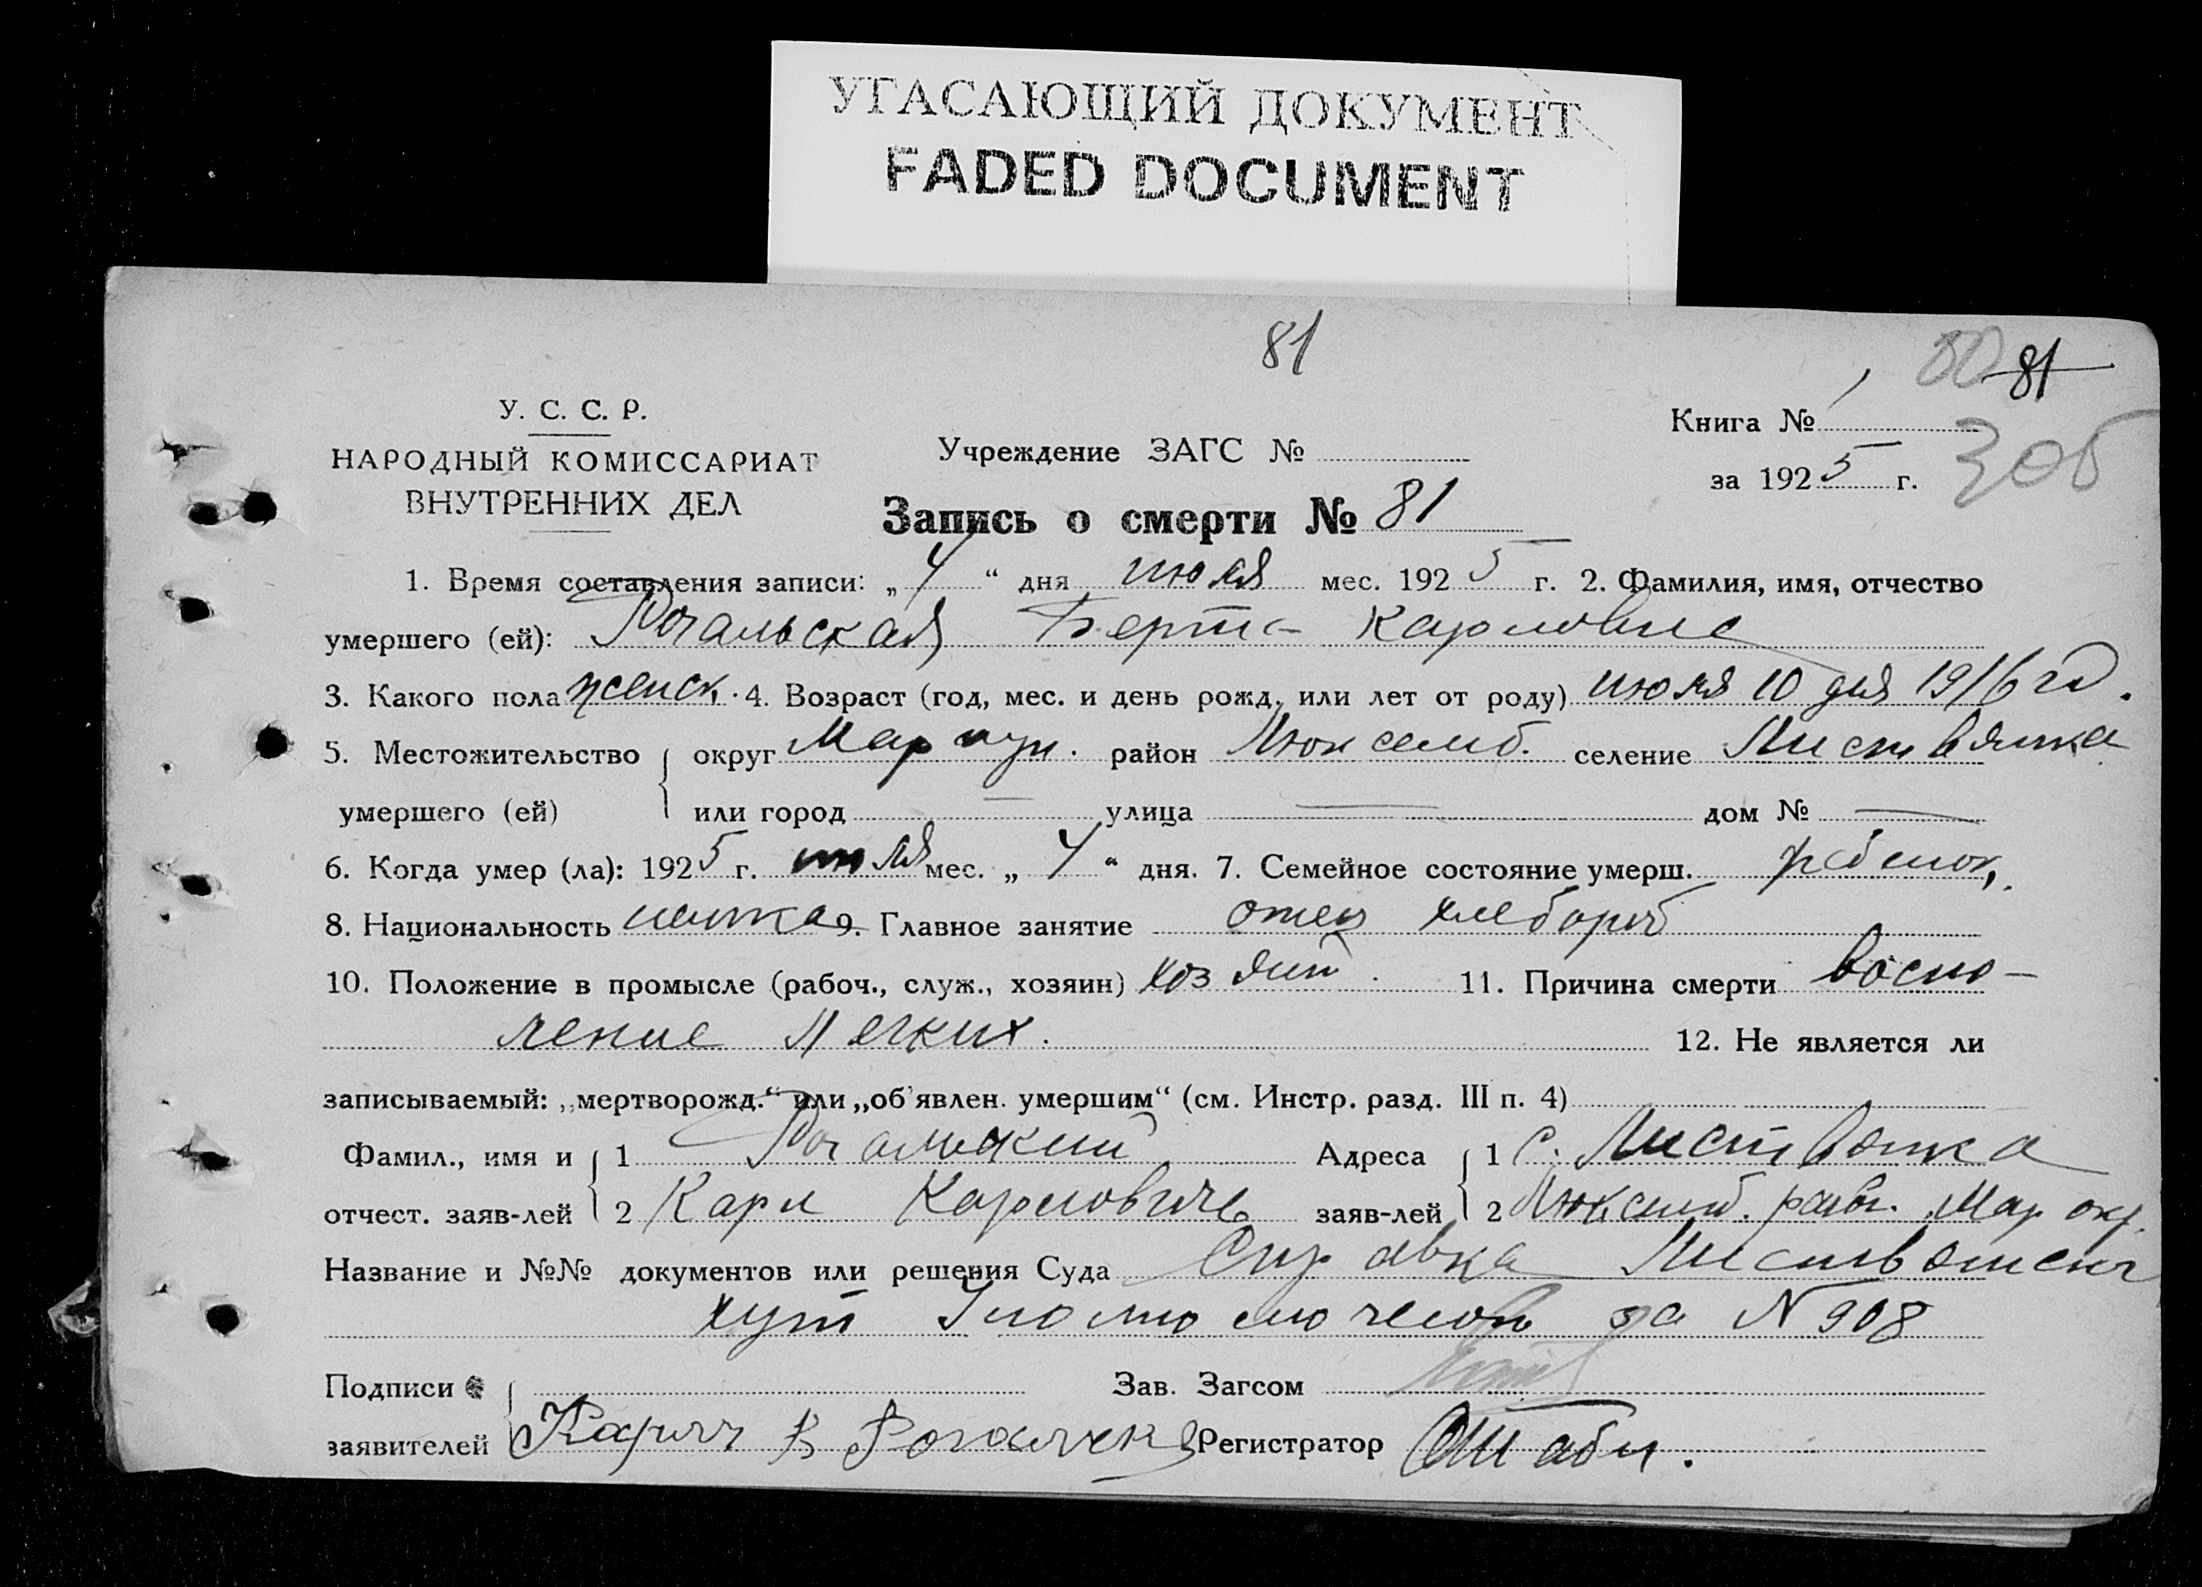 УГАСАЮЩИЙ ДОКУМЕНТ
FADED DOCUMENT
81
80 81
У. С. С. Р.
НАРОДНЫЙ КОМИССАРИАТ
ВНУТРЕННИХ ДЕЛ
Учреждение ЗАГС №
Книга № 1
за 1925 г.
306
Запись о смерти № 81
1. Время составления записи: „4“ дня июля мес. 1925 г. 2. Фамилия, имя, отчество
умершего (ей): Рогальская Берта Карловна
3. Какого пола женск. 4. Возраст (год, мес. и день рожд. или лет от роду) июля 10 дня 1916 год.
5. Местожительство округ Мариуп. район Люксемб. селение Листвянка
умершего (ей) или город — улица — дом № —
6. Когда умер (ла): 1925 г. июля мес. „4“ дня. 7. Семейное состояние умерш. ребенок
8. Национальность немка 9. Главное занятие отец хлебороб
10. Положение в промысле (рабоч., служ., хозяин) хозяин. 11. Причина смерти воспо-
ление легких.
12. Не является ли
записываемый: „мертворожд.“ или „об'явлен. умершим“ (см. Инстр. разд. III п. 4)
Фамил., имя и 1 Рогальский Адреса 1 с. Листвянка
отчест. заяв-лей 2 Карл Карлович заяв-лей 2 Люксемб. район. Мар окр.
Название и №№ документов или решения Суда Справка Листвянск
хут за N 908
Подписи Зав. Загсом
заявителей Карл К Регистратор